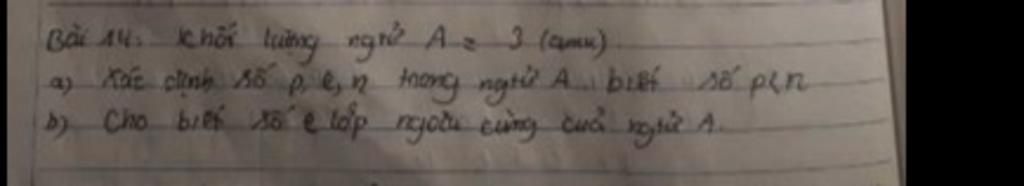 Bài 14: Khối lượng ngtử A = 3 (amu)
a) Xác định số p, e, n trong ngtử A. biết số p<n
b) Cho biết số e lớp ngoài cùng của ngtử A.